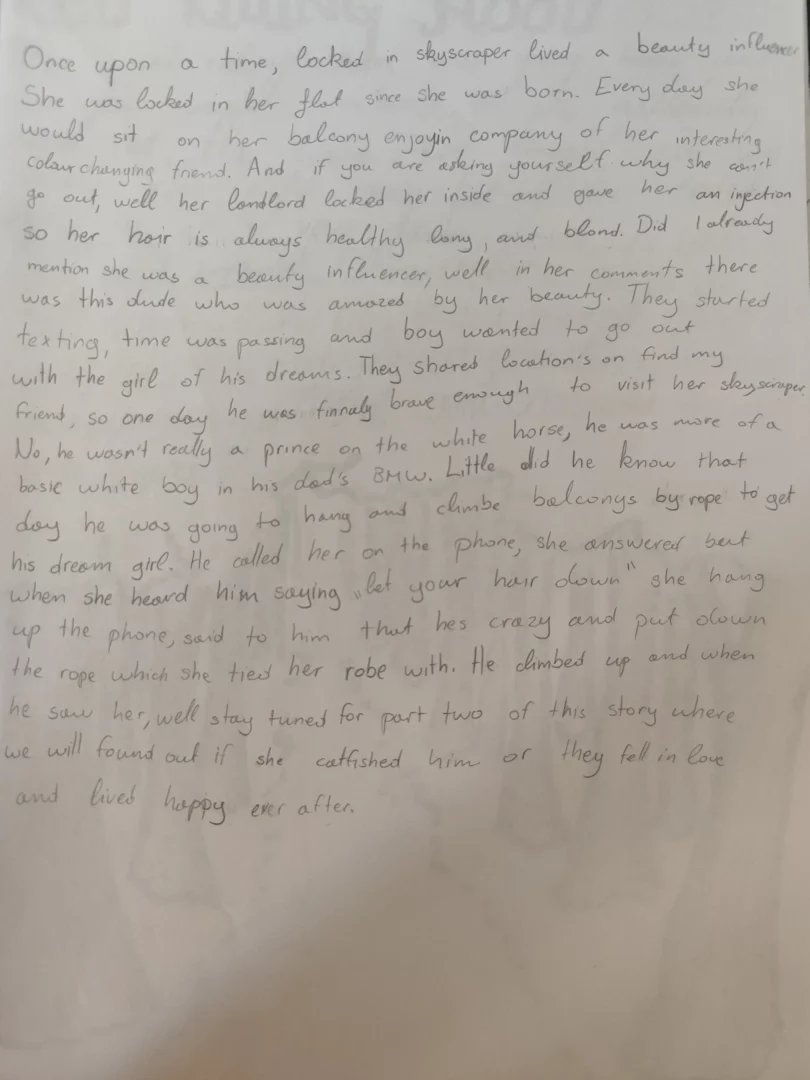 Once upon a time, locked in skyscraper lived a beauty influencer
She was locked in her flat since she was born. Every day she
would sit on her balcony enjoyin company of her interesting
colour changing friend. And if you are asking yourself why she can't
go out, well her landlord locked her inside and gave her an injection
so her hair is always healthy long, and blond. Did I already
mention she was a beauty influencer, well in her comments there
was this dude who was amazed by her beauty. They started
texting, time was passing and boy wanted to go out
with the girl of his dreams. They shared location's on find my
friend, so one day he was finnaly brave enough to visit her skyscraper
No, he wasn't really a prince on the white horse, he was more of a
basic white boy in his dad's BMW. Little did he know that
day he was going to hang and climbe balconys by rope to get
his dream girl. He called her on the phone, she answered but
when she heard him saying „let your hair down" she hang
up the phone, said to him that hes crazy and put down
the rope which she tied her robe with. He climbed up and when
he saw her, well stay tuned for part two of this story where
we will found out if she catfished him or they fell in love
and lived happy ever after.